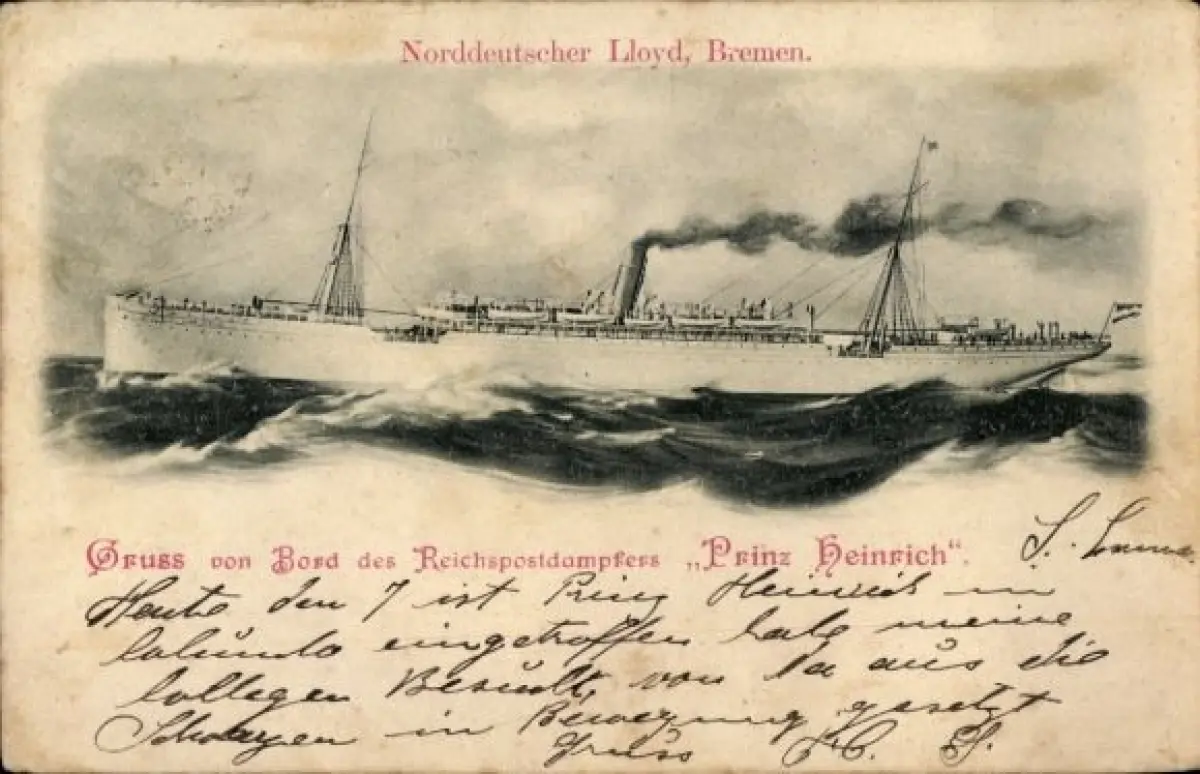 Norddeutscher Lloyd, Bremen.
Gruss von Bord des Reichspostdampfers „Prinz Heinrich“.
Heute den 7 ist Prinz Heinrich in
eingetroffen habe meine
Collegen Besucht, von da aus die
in Bewegung gesetzt
Gruss